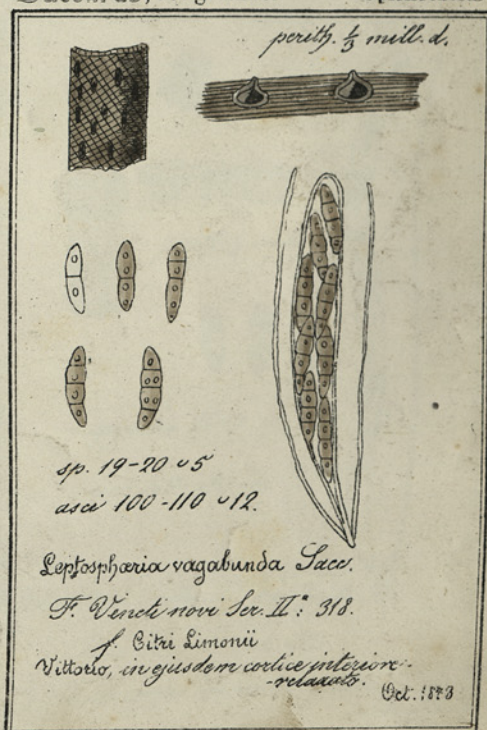 perith. ⅓ mill. d.
sp. 19-20 ⌣ 5
asci 100-110 ⌣ 12.
Leptosphæria vagabunda Sacc.
F. Veneti novi Ser. II.ª: 318.
f. Citri Limonii
Vittorio, in ejusdem cortice interiore
relaxato.
Oct. 1873